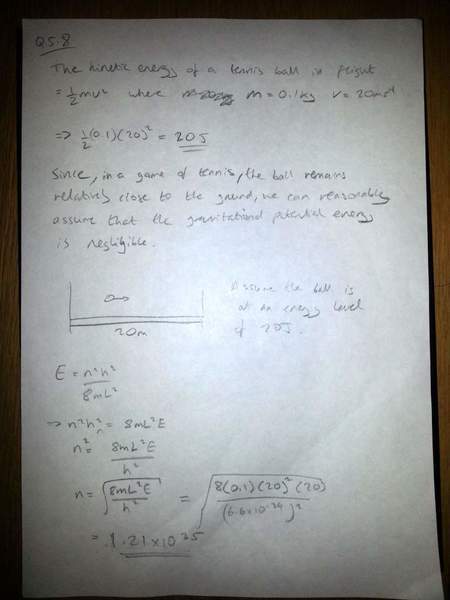 Q5.8
The kinetic energy of a tennis ball in flight
= ½mv² where m = 0.1kg v = 20ms⁻¹
=> ½(0.1)(20)² = 20J
Since, in a game of tennis, the ball remains
relatively close to the ground, we can reasonably
assume that the gravitational potential energy
is negligible.
Assume the ball is
at an energy level
of 20J.
20m
E = n²h²
8mL²
=> n²h² = 8mL²E
n² = 8mL²E
h²
n = √8mL²E/h² = √8(0.1)(20)²(20)/(6.6x10⁻³⁴)²
= 1.21x10³⁵